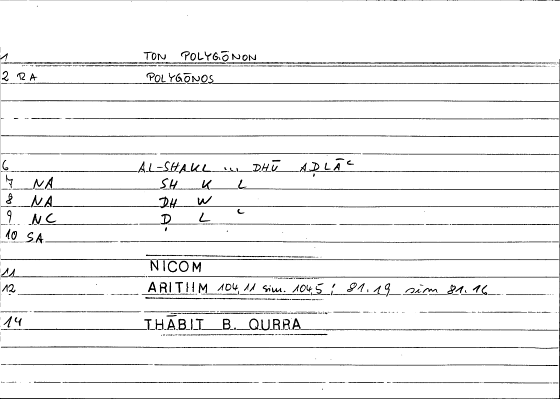 1 TON POLYGŌNON
2 RA POLYGŌNOS
6 AL-SHAKL ... DHŪ AḌLĀᶜ
7 NA SH K L
8 NA DH W
9 NC Ḍ L ᶜ
10 SA
11 NICOM
12 ARITHM 104,11 sim. 104,5; 81.19 sim 81.16
14 THĀBIT B. QURRA